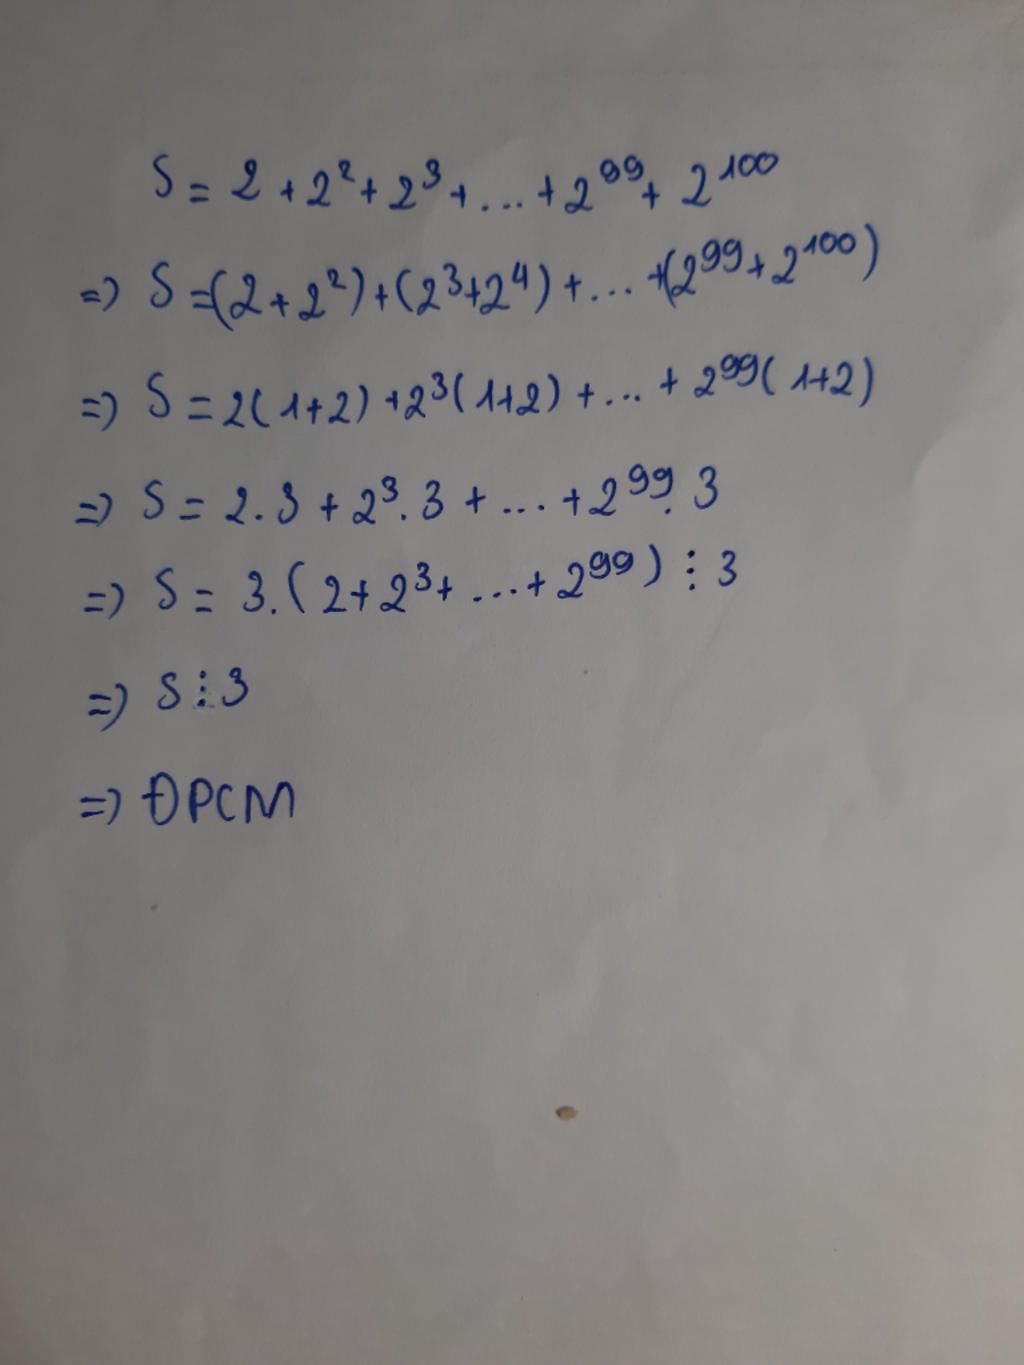 S = 2 + 2² + 2³ + ... + 2⁹⁹ + 2¹⁰⁰
=> S = (2 + 2²) + (2³ + 2⁴) + ... + (2⁹⁹ + 2¹⁰⁰)
=> S = 2(1+2) + 2³(1+2) + ... + 2⁹⁹(1+2)
=> S = 2.3 + 2³.3 + ... + 2⁹⁹.3
=> S = 3.(2 + 2³ + ... + 2⁹⁹) ⋮ 3
=> S ⋮ 3
=> ĐPCM